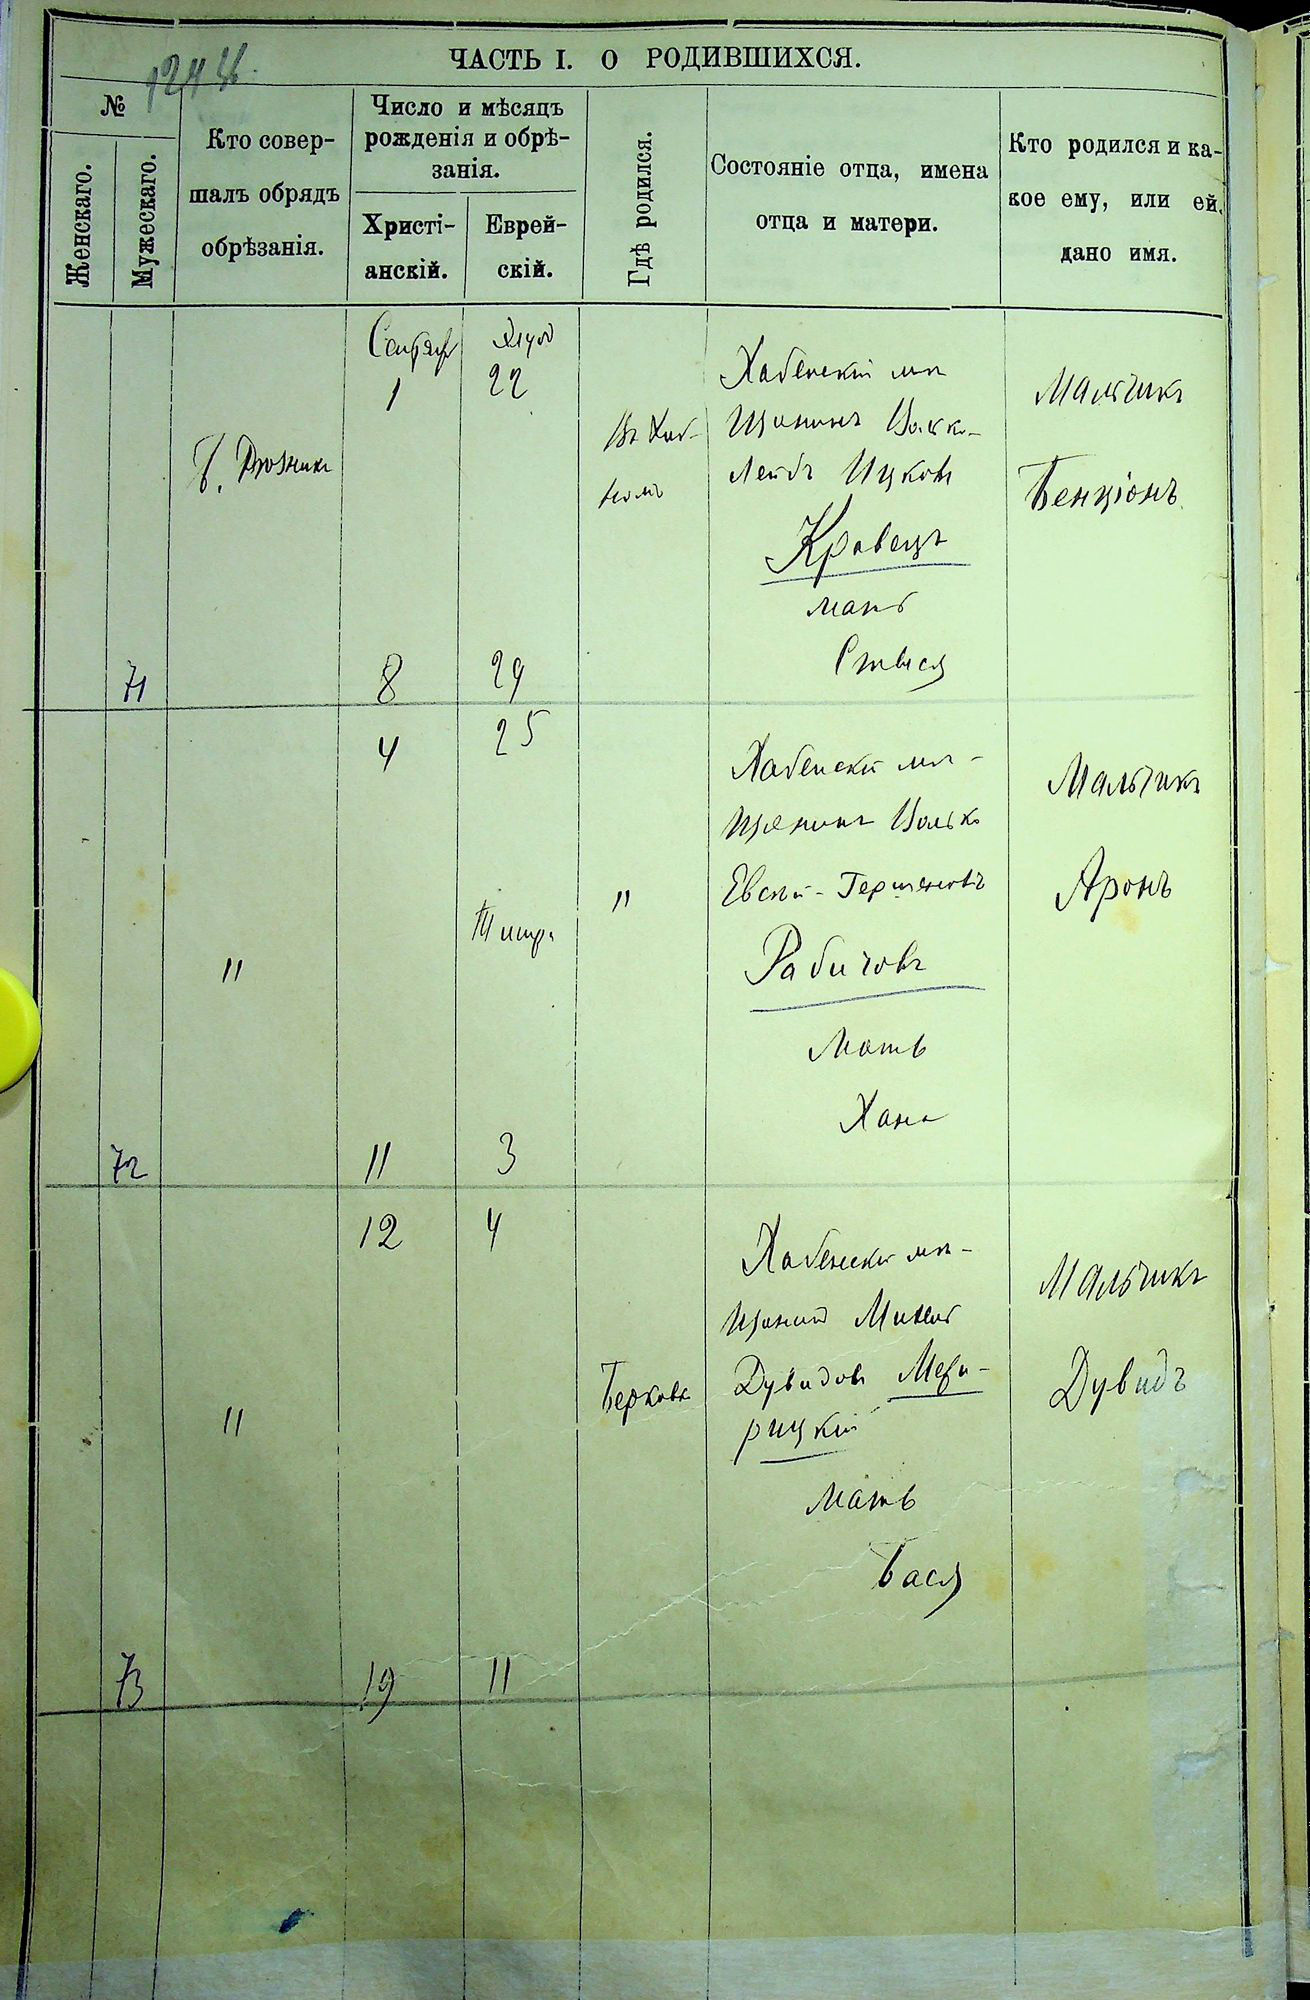 ЧАСТЬ I. О РОДИВШИХСЯ.
№
Женскаго.
Мужескаго.
Кто совер-
шалъ обрядъ
обрѣзанія.
Число и мѣсяцъ
рожденія и обрѣ-
занія.
Христі-
анскій.
Еврей-
скій.
Гдѣ родился.
Состояніе отца, имена
отца и матери.
Кто родился и ка-
кое ему, или ей,
дано имя.
71
Сентябр
1
8
22
29
Въ Хаб-
номъ
Хабенскій мѣ
щанинъ Волько-
Лейбъ Ицковъ
Кравецъ
мать
Стыся
Мальчикъ
Бенціонъ.
72
"
4
11
25
Тишри
3
"
Хабенскій мѣ-
щанинъ Волько
Евсей-Гершеновъ
Рабичовъ
Мать
Хана
Мальчикъ
Аронъ
73
"
12
19
4
11
Хабенскій мѣ-
щанинъ
Дувидовъ Мези-
рицкій
Мать
Бася
Мальчикъ
Дувидъ